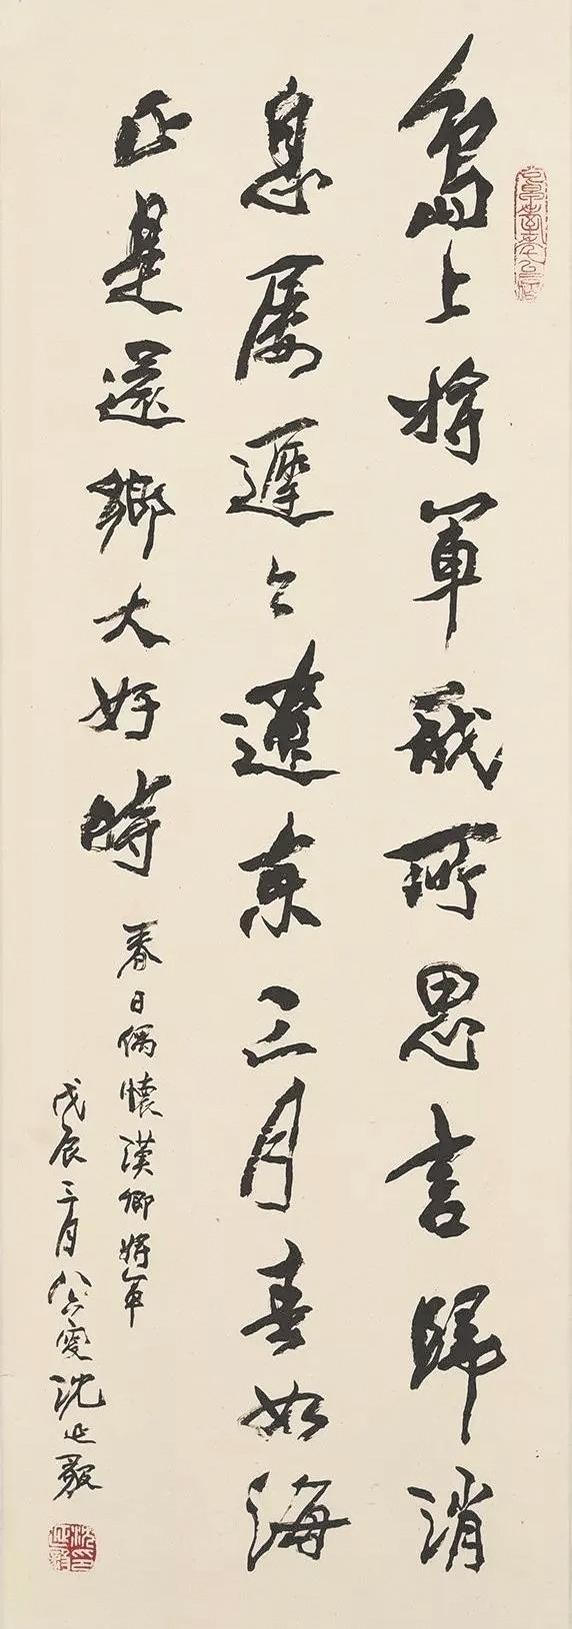 島上將軍我所思言歸消
息屡遲々遼東三月春如海
正是還鄉大好時
春日偶懷漢卿將軍
戊辰三月八六叟沈延毅